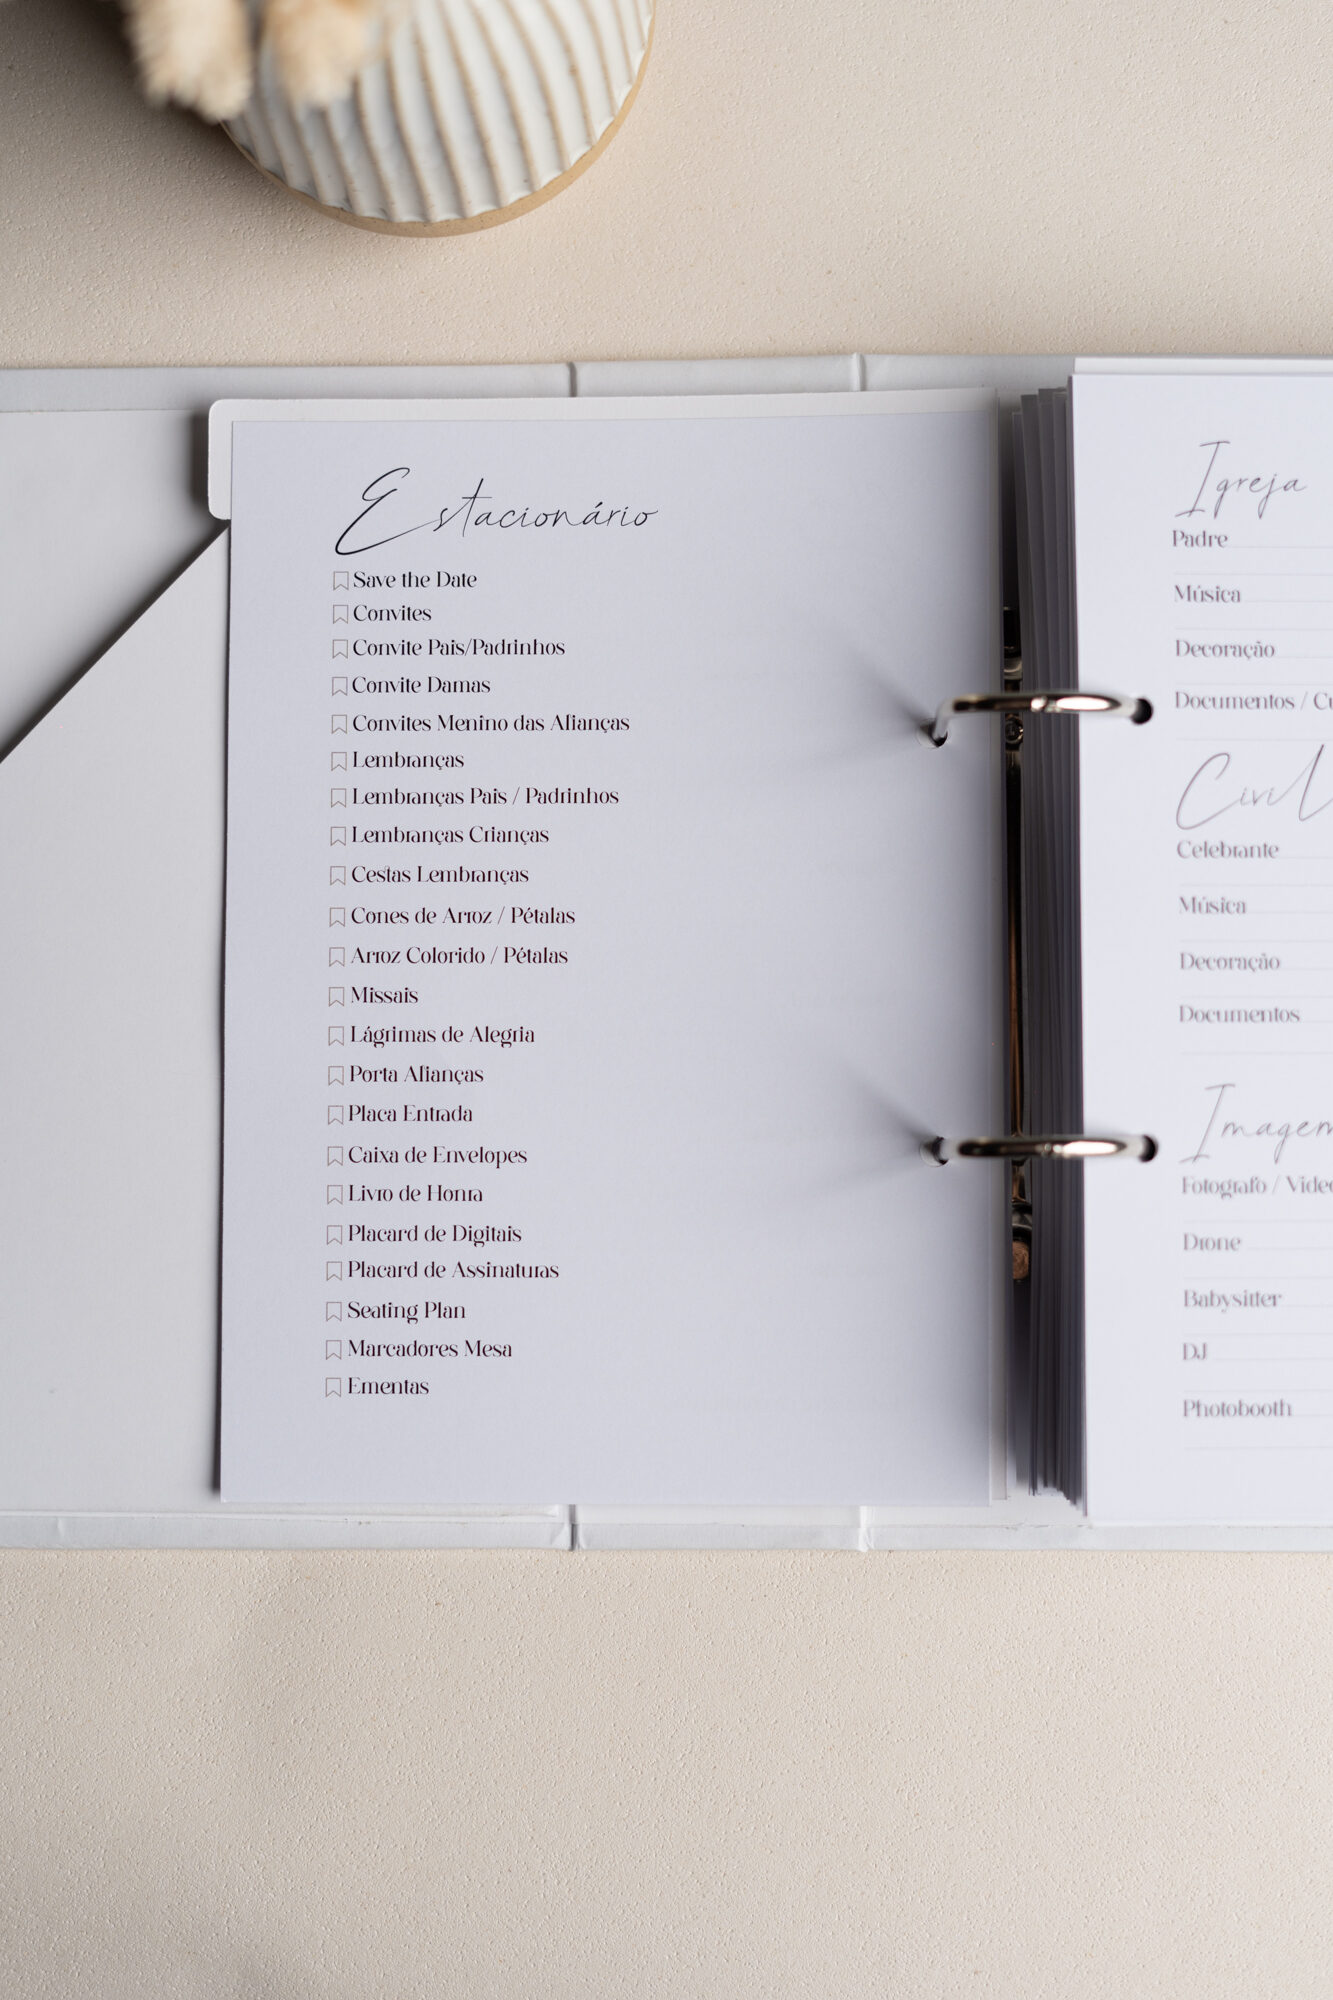 Estacionário
Save the Date
Convites
Convite Pais/Padrinhos
Convite Damas
Convites Menino das Alianças
Lembranças
Lembranças Pais / Padrinhos
Lembranças Crianças
Cestas Lembranças
Cones de Arroz / Pétalas
Arroz Colorido / Pétalas
Missais
Lágrimas de Alegria
Porta Alianças
Placa Entrada
Caixa de Envelopes
Livro de Honra
Placard de Digitais
Placard de Assinaturas
Seating Plan
Marcadores Mesa
Ementas
Igreja
Padre
Música
Decoração
Documentos /
Civil
Celebrante
Música
Decoração
Documentos
Imagem
Fotografo /
Drone
Babysitter
DJ
Photobooth